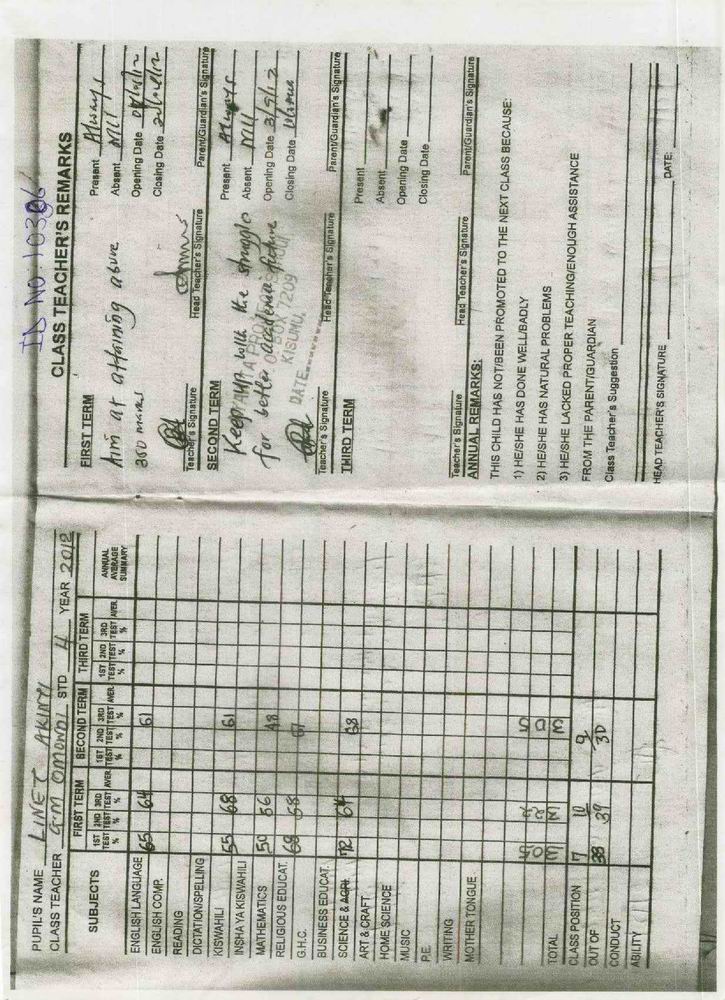 PUPIL'S NAME LINET AKINYI
CLASS TEACHER G.M OMONDI STD 4 YEAR 2012
SUBJECTS
FIRST TERM
SECOND TERM
THIRD TERM
ANNUAL AVERAGE SUMMARY
1ST TEST % 2ND TEST % 3RD TEST % AVER.
1ST TEST % 2ND TEST % 3RD TEST % AVER.
1ST TEST % 2ND TEST % 3RD TEST % AVER.
ENGLISH LANGUAGE 65 64 61
ENGLISH COMP.
READING
DICTATION/SPELLING
KISWAHILI 55 68 61
INSHA YA KISWAHILI
MATHEMATICS 50 56 48
RELIGIOUS EDUCAT. 68 68
G.H.C.
BUSINESS EDUCAT.
SCIENCE & AGRI. 72 64 68
ART & CRAFT
HOME SCIENCE
MUSIC
P.E.
WRITING
MOTHER TONGUE
TOTAL
CLASS POSITION 7 10 9
OUT OF 38 39 30
CONDUCT
ABILITY
ID NO. 10306
CLASS TEACHER'S REMARKS
FIRST TERM
Aim at attaining above
350 marks
Present Always
Absent Nil
Opening Date
Closing Date
Teacher's Signature
Head Teacher's Signature
Parent/Guardian's Signature
SECOND TERM
Keep up with the struggle
for better academic future
BOX 7209
KISUMU.
DATE
Present Always
Absent Nil
Opening Date 3/9/12
Closing Date
Teacher's Signature
Head Teacher's Signature
Parent/Guardian's Signature
THIRD TERM
Present
Absent
Opening Date
Closing Date
Teacher's Signature
Head Teacher's Signature
Parent/Guardian's Signature
ANNUAL REMARKS:
THIS CHILD HAS NOT/BEEN PROMOTED TO THE NEXT CLASS BECAUSE:
1) HE/SHE HAS DONE WELL/BADLY
2) HE/SHE HAS NATURAL PROBLEMS
3) HE/SHE LACKED PROPER TEACHING/ENOUGH ASSISTANCE
FROM THE PARENT/GUARDIAN
Class Teacher's Suggestion
HEAD TEACHER'S SIGNATURE DATE: